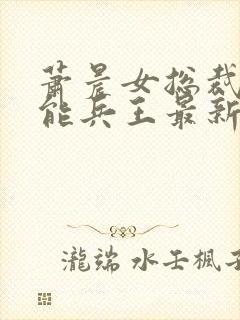 萧晨女总裁
能兵王最新
瀧端 水壬楓子